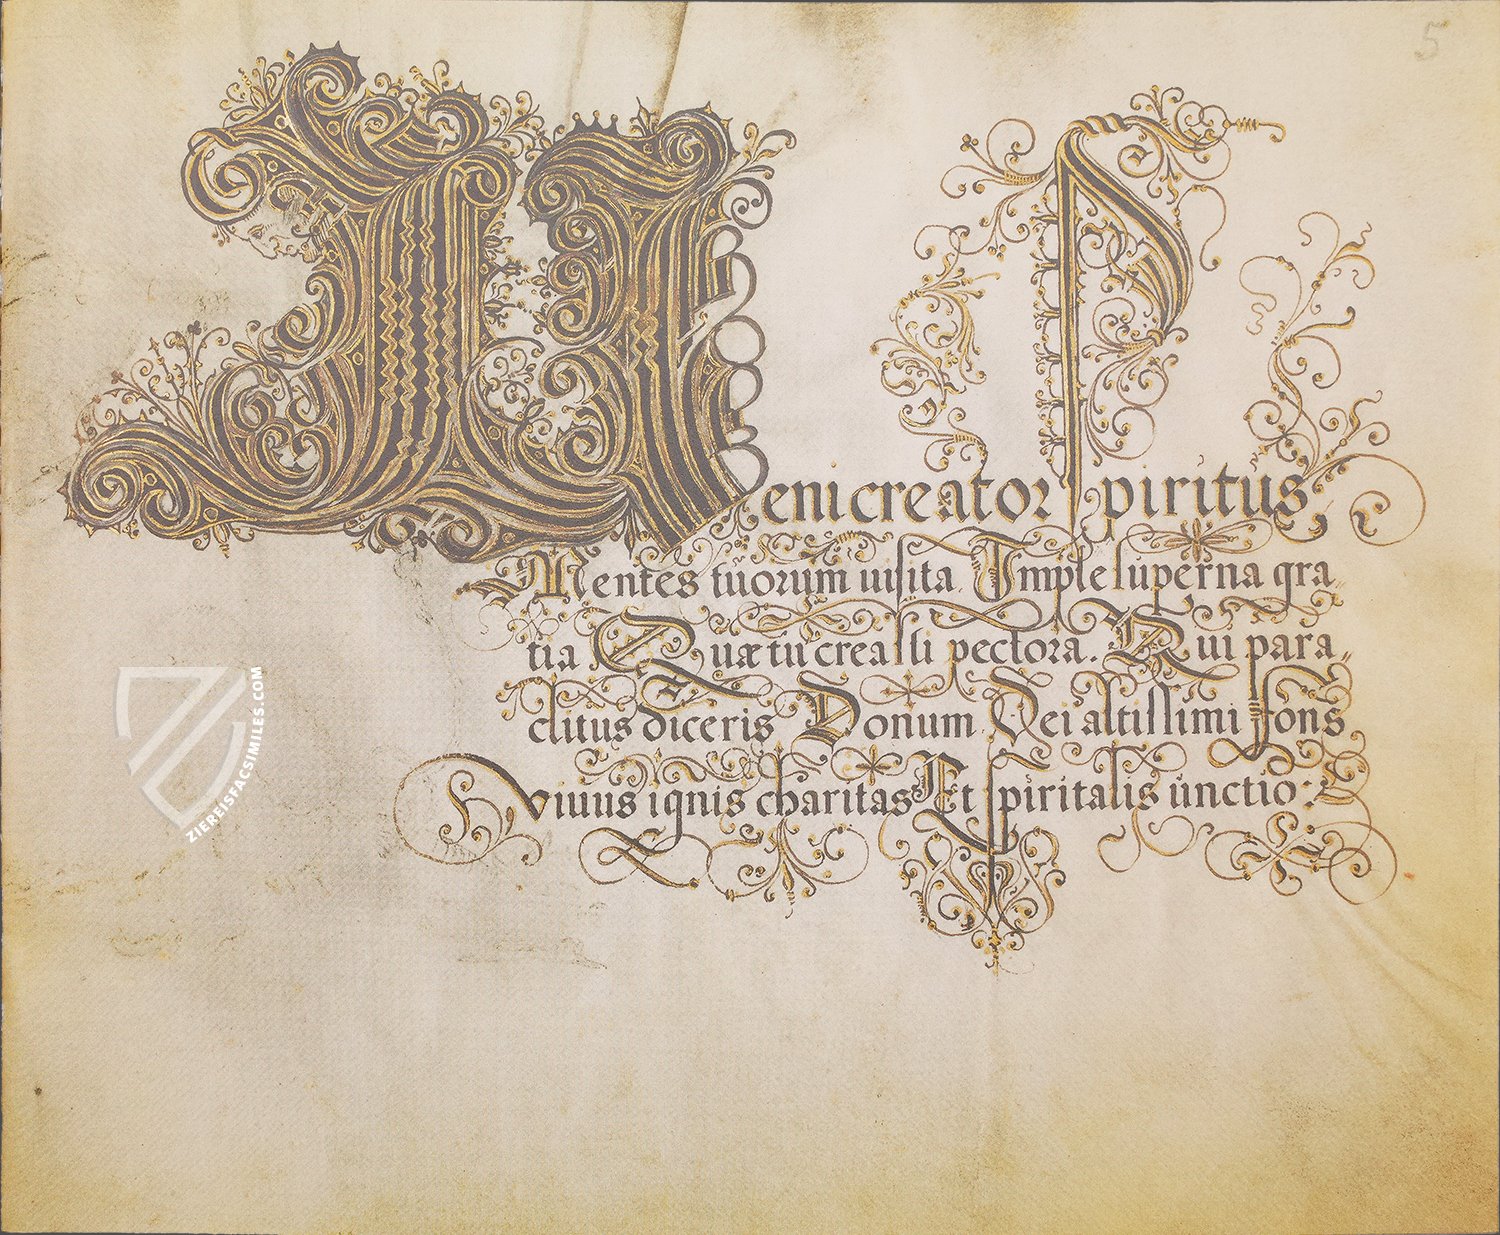 5
Veni creator Spiritus
Mentes tuorum uisita. Imple superna gra-
tia Quæ tu creasti pectora. Qui para-
clitus diceris Donum Dei altissimi fons
viuus ignis charitas Et spiritalis unctio:
ZIEREISFACSIMILES.COM